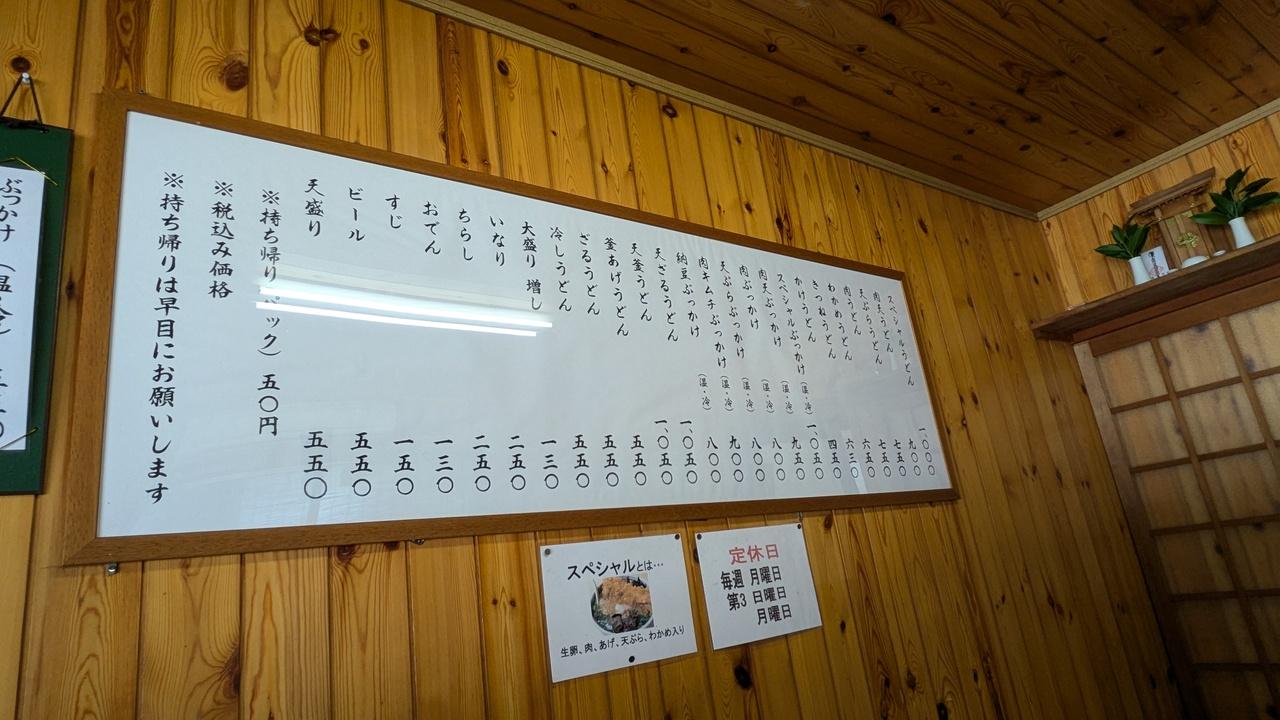 スペシャルうどん 一、〇〇〇
肉天うどん 九〇〇
天ぷらうどん 七五〇
肉うどん 七五〇
わかめうどん 六五〇
きつねうどん 六三〇
かけうどん 四五〇
スペシャルぶっかけ（温・冷） 一、〇五〇
肉天ぶっかけ（温・冷） 九五〇
肉ぶっかけ（温・冷） 八〇〇
天ぷらぶっかけ（温・冷） 八〇〇
肉キムチぶっかけ（温・冷） 九〇〇
納豆ぶっかけ（温・冷） 八〇〇
天ざるうどん 一、〇五〇
天釜うどん 一、〇五〇
釜あげうどん 五五〇
ざるうどん 五五〇
冷しうどん 五五〇
大盛り 増し 一三〇
いなり 二五〇
ちらし 二五〇
おでん 一三〇
すじ 一五〇
ビール 五五〇
天盛り 五五〇
※持ち帰り（パック）五〇円
※税込み価格
※持ち帰りは早目にお願いします
ぶっかけ（温
スペシャルとは…
生卵、肉、あげ、天ぷら、わかめ入り
定休日
毎週 月曜日
第3 日曜日
月曜日